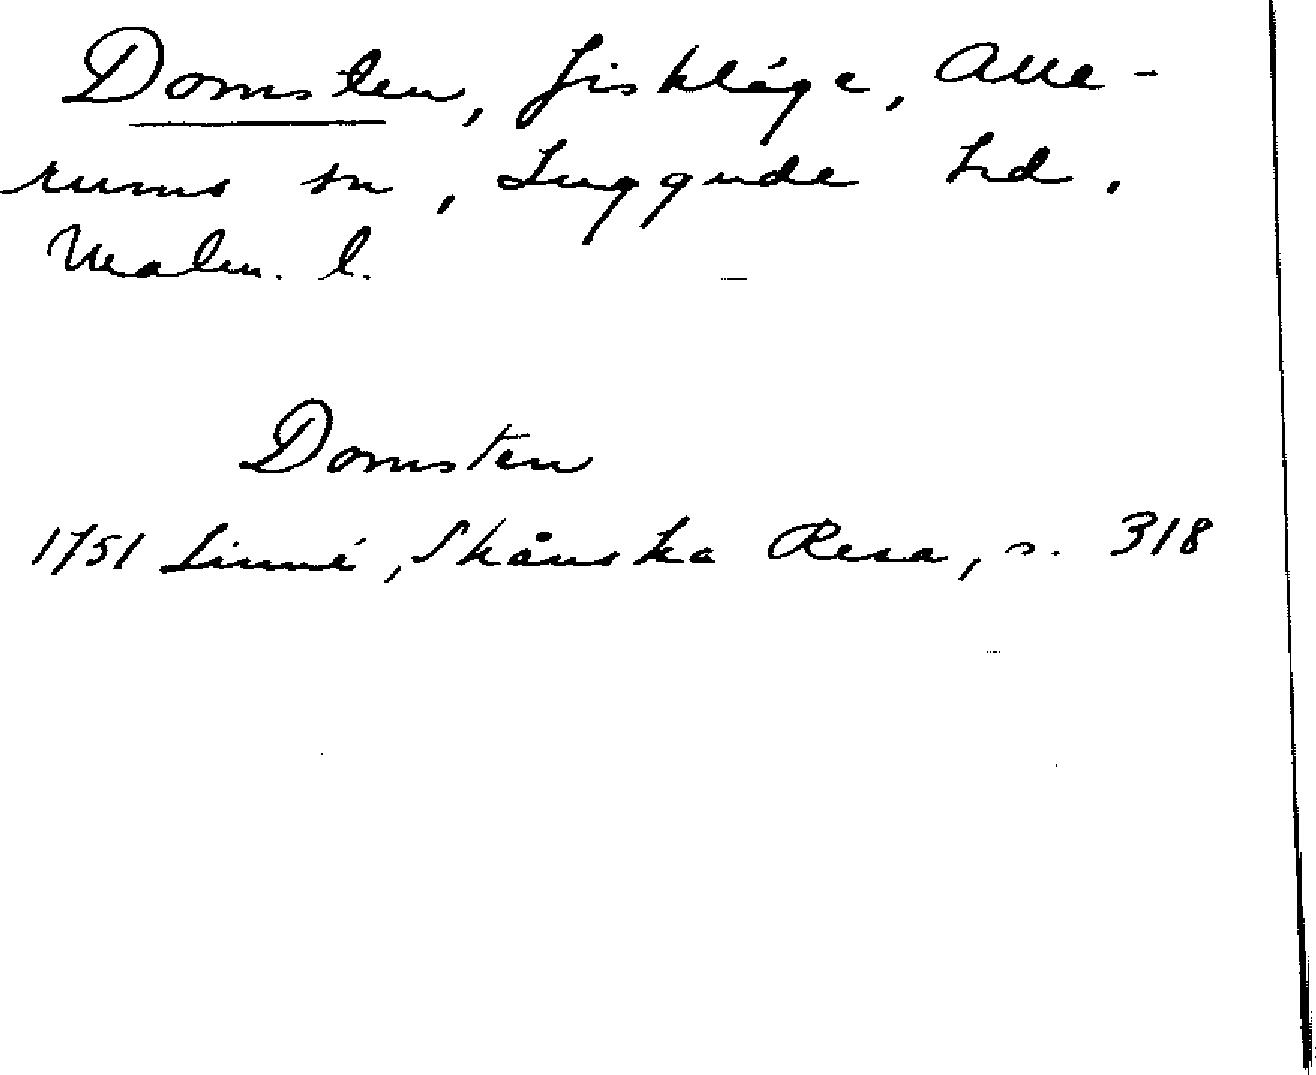 Domsten, fiskläge, Alle-
rums sn, Luggude hd,
Malm. l.
Domsten
1751 Linné, Skånska Resa, s. 318